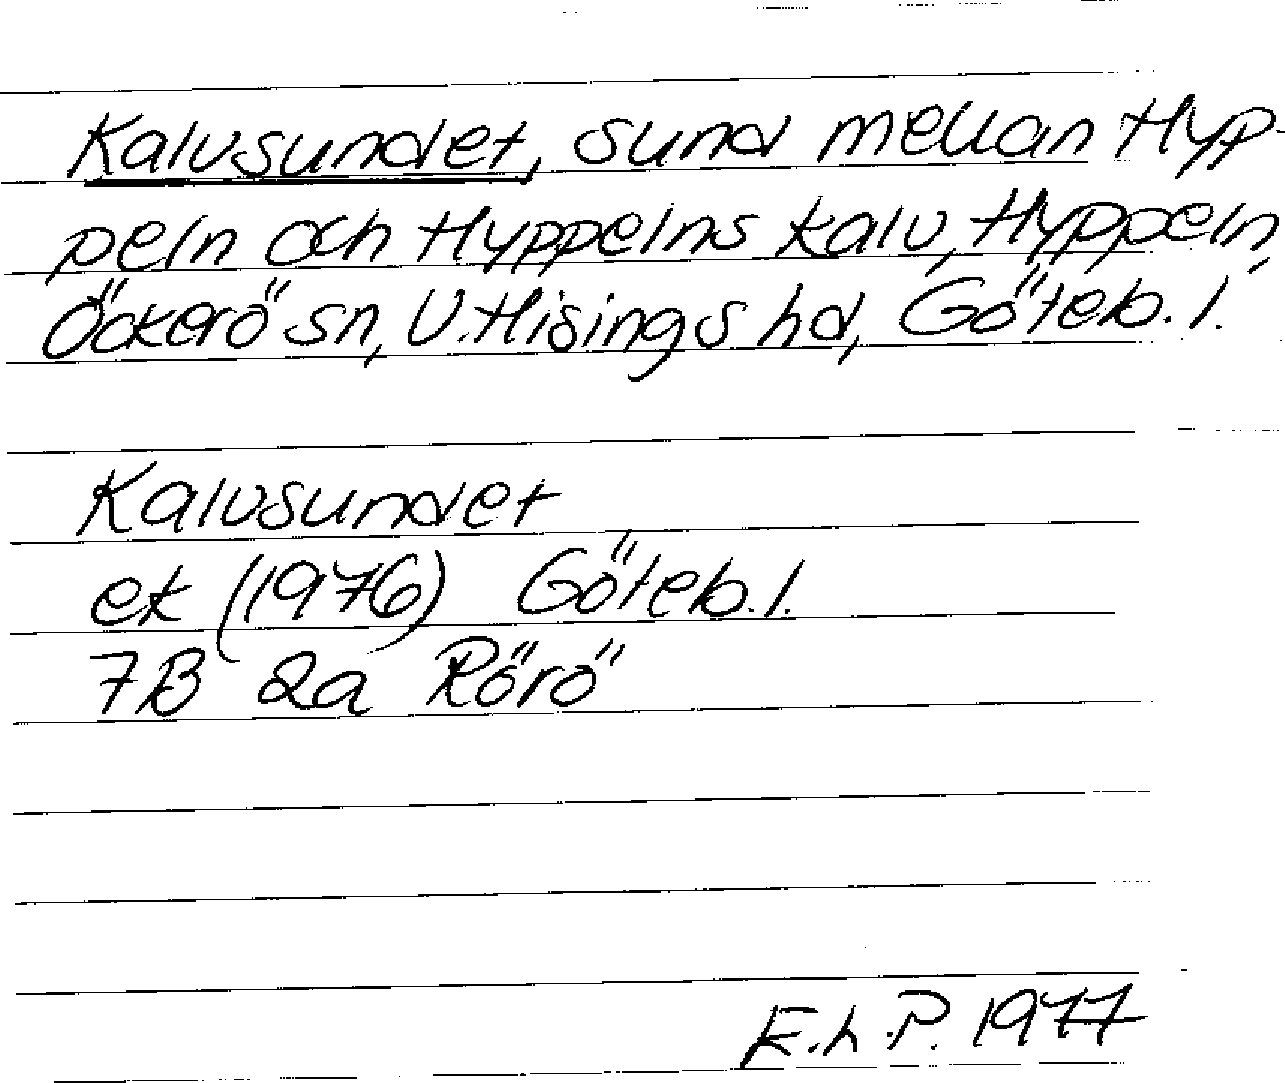 Kalvsundet, sund mellan Hyp-
peln och Hyppelns kalv, Hyppeln,
Öckerö sn, V. Hisings hd, Göteb. l.
Kalvsundet
ek (1976) Göteb. l.
7B 2a Rörö
E.L.P. 1977